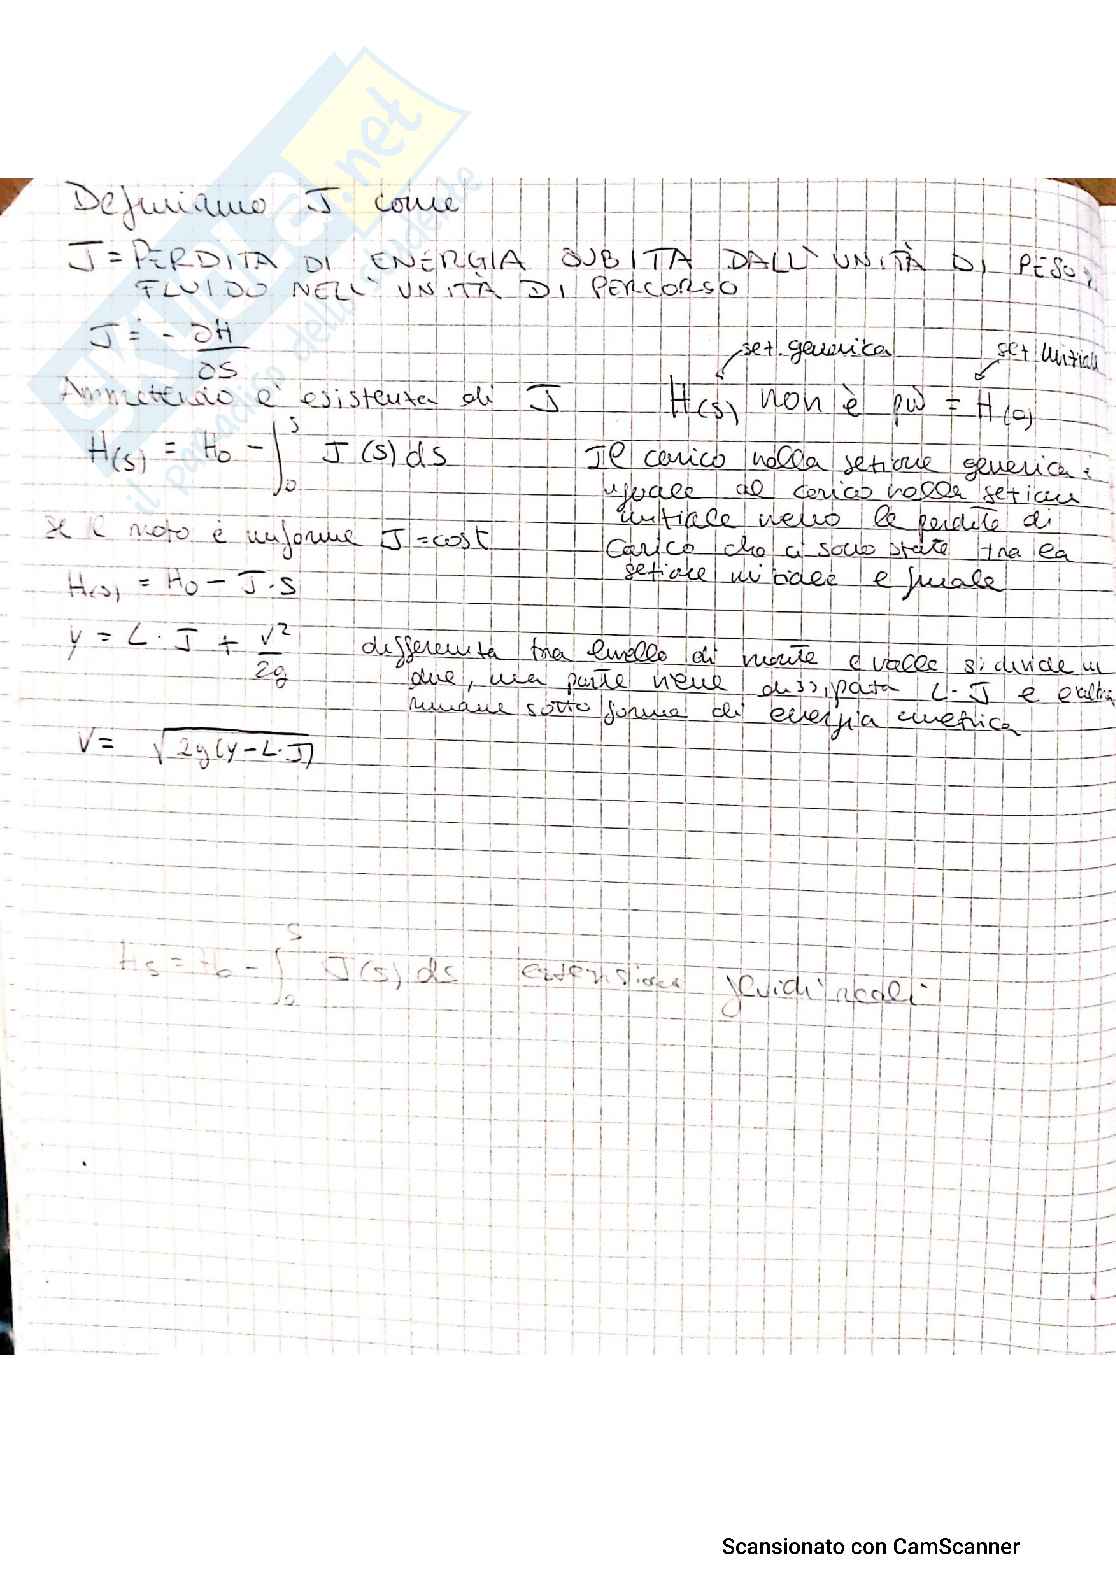 Definiamo J come
J = PERDITA DI ENERGIA SUBITA DALL'UNITÀ DI PESO,
FLUIDO NELL'UNITÀ DI PERCORSO
J = - ∂H/∂S
set. generica
set. iniziale
Ammettendo l'esistenza di J
H(s) non è più = H(0)
H(s) = H0 - ∫0^s J(s) ds
Il carico nella sezione generica è
uguale al carico nella sezione
iniziale meno le perdite di
carico che ci sono state tra la
sezione iniziale e finale
Se il moto è uniforme J = cost
H(s) = H0 - J·s
y = L·J + V²/2g
differenza tra livello di monte e valle si divide in
due, una parte viene dissipata L·J e l'altra
rimane sotto forma di energia cinetica
V = √2g(y-L·J)
Hs = H0 - ∫0^s J(s) ds estensione fluidi reali
SKUOLA.net
il paradiso dello studente
Scansionato con CamScanner